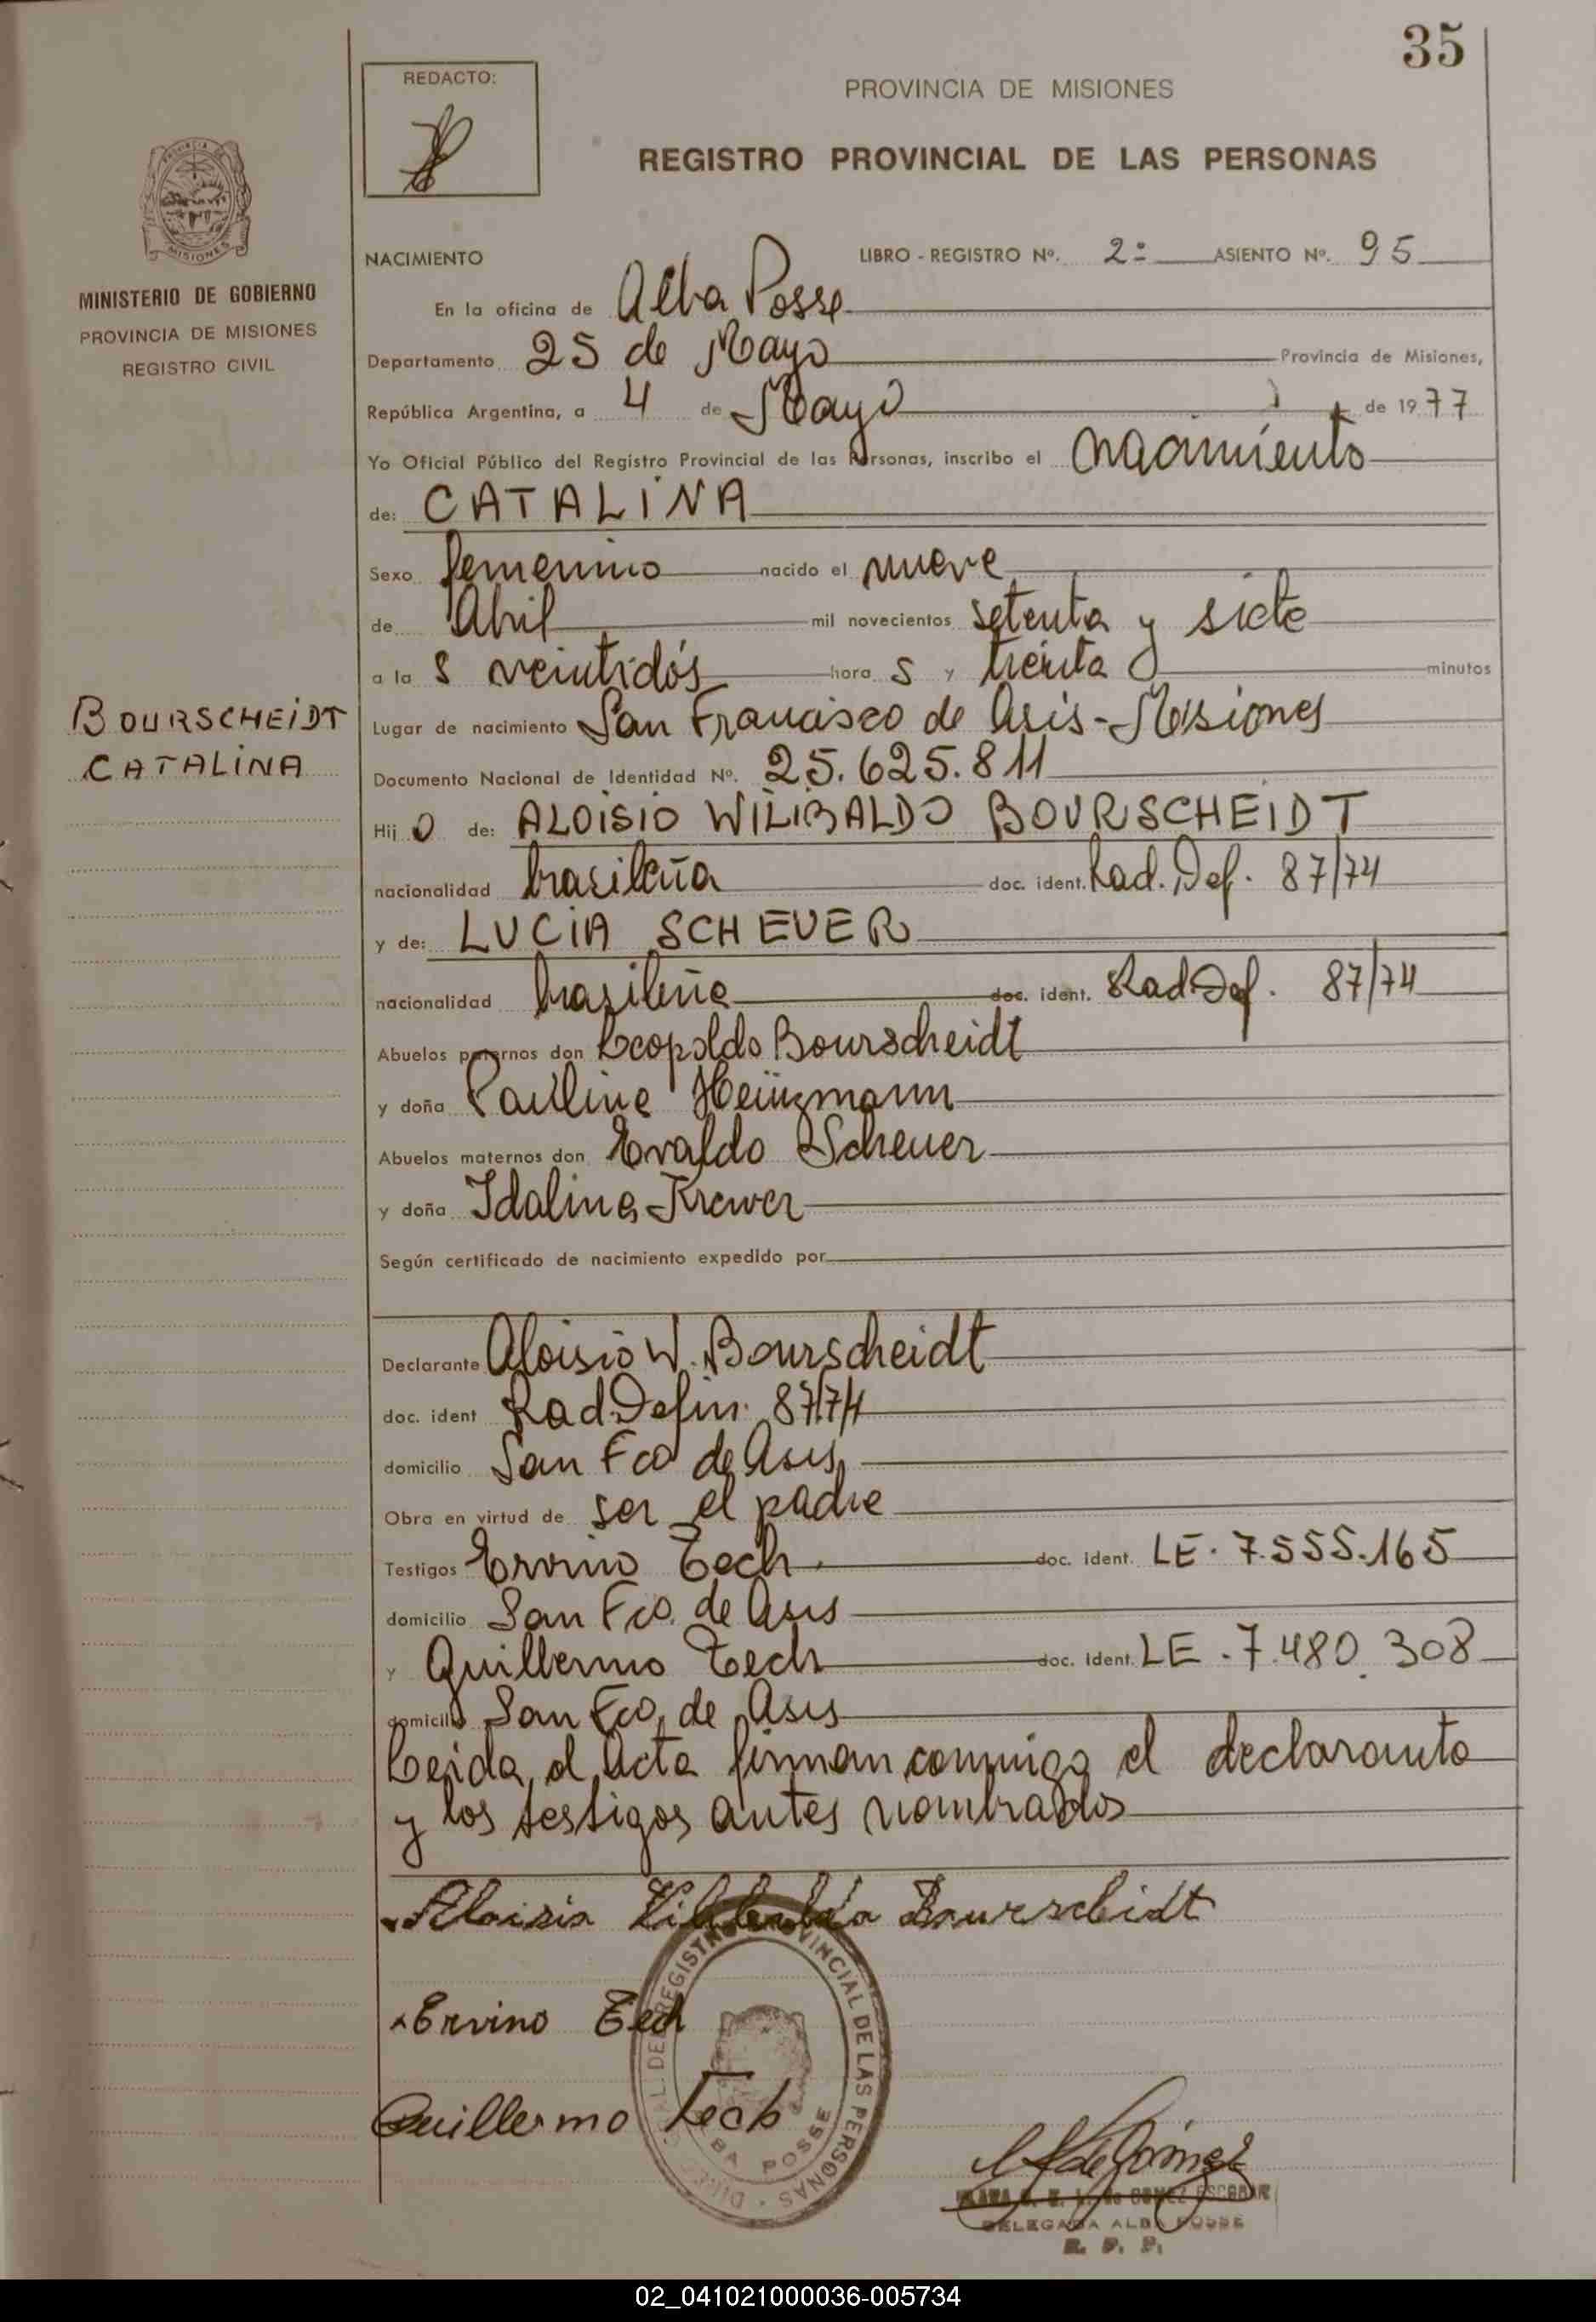 35
REDACTO:
PROVINCIA DE MISIONES
REGISTRO PROVINCIAL DE LAS PERSONAS
PROVINCIA DE
MISIONES
MINISTERIO DE GOBIERNO
PROVINCIA DE MISIONES
REGISTRO CIVIL
NACIMIENTO LIBRO - REGISTRO Nº. 2º ASIENTO Nº. 95
En la oficina de Alba Posse
Departamento 25 de Mayo Provincia de Misiones,
República Argentina, a 4 de Mayo de 1977
Yo Oficial Público del Registro Provincial de las Personas, inscribo el nacimiento
de: CATALINA
Sexo femenino nacido el nueve
de Abril mil novecientos setenta y siete
a la s veintidós hora s y treinta minutos
BOURSCHEIDT
CATALINA
Lugar de nacimiento San Francisco de Asis - Misiones
Documento Nacional de Identidad Nº. 25.625.811
Hij o de: ALOISIO WILIBALDO BOURSCHEIDT
nacionalidad brasileña doc. ident. Rad. Def. 87/74
y de: LUCIA SCHEUER
nacionalidad brasileña doc. ident. Rad Def. 87/74
Abuelos paternos don Leopoldo Bourscheidt
y doña Pauline Heinzmann
Abuelos maternos don Evaldo Scheuer
y doña Idalina Krewer
Según certificado de nacimiento expedido por
Declarante Aloisio W. Bourscheidt
doc. ident Rad. Defin. 87/74
domicilio San Fco de Asis
Obra en virtud de ser el padre
Testigos Ervino Tech doc. ident. LE. 7.555.165
domicilio San Fco. de Asis
y Guillermo Tech doc. ident. LE. 7.480.308
domicilio San Fco. de Asis
Leida el Acta firman conmigo el declarante
y los testigos antes nombrados
Aloisio Bourscheidt
Ervino Tech
Guillermo Tech
REGISTRO PROVINCIAL DE LAS PERSONAS
ALBA POSSE
de Gómez
de GOMEZ ESCOBAR
DELEGADA ALBA POSSE
R. P. P.
02_041021000036-005734